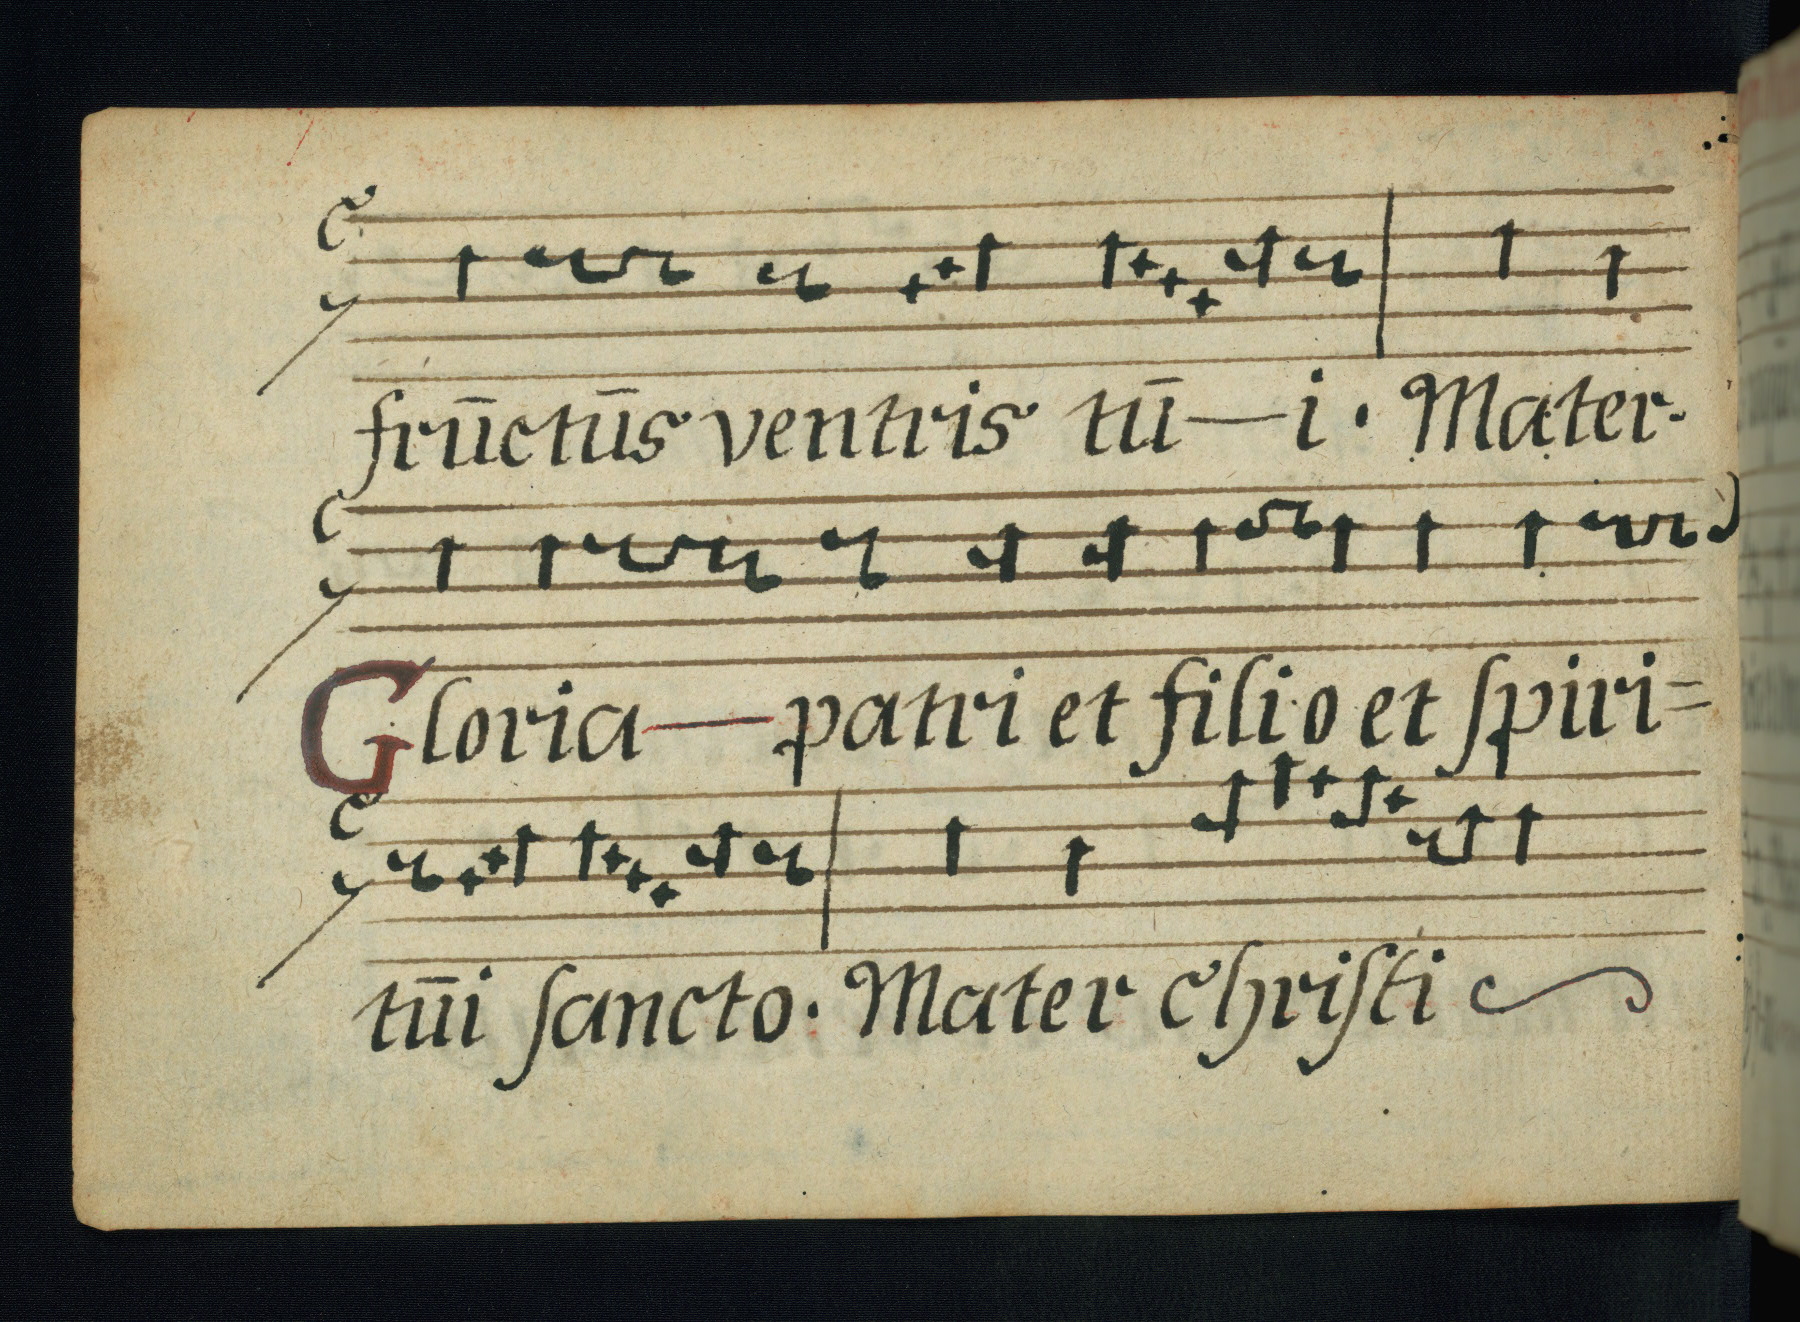 frūctūs ventris tū—i · Mater-
Gloria— patri et filio et ſpiri=
tūi ſancto · Mater Chriſti